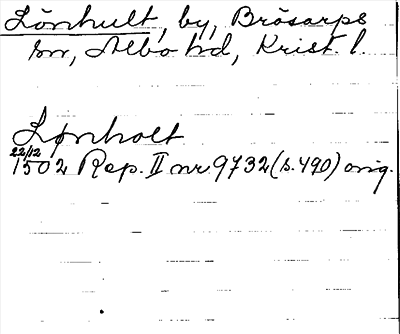 Lönhult, by, Brösarps
sn, Albo hd, Krist. l.
Lønholt
22/12
1502 Rep. II nr 9732 (s. 490) orig.